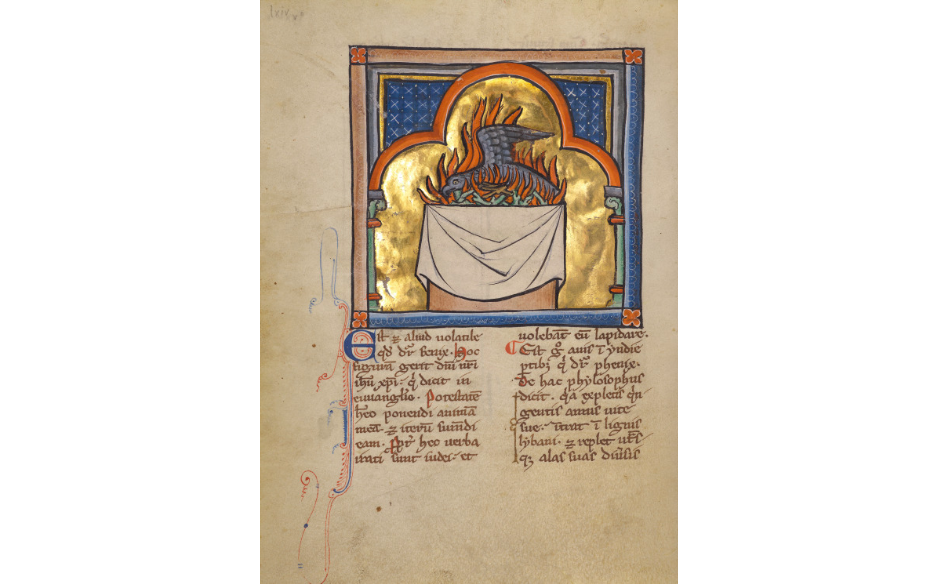 Est ⁊ aliud volatile
qd̄ dr̄ fenix. hoc
figurā gerit dn̄i nr̄i
ihū xp̄i. q̄ dicit in
euuanglio. Potestatē
heo ponendi animā
meā. ⁊ iterū sum̄di
eam. Ppt̄ hec uerba
irati sunt iudei. et
uolebāt eū lapidare.
Est g̊ auis ī yndie
ptibꝫ q̄ dr̄ phenix.
De hac phylosophus
dicit. qa expletis qn̄
gentis annis uite
sue. īt̄rat ī lignis
lybani. ⁊ replet ut̄s
qꝫ alas suas diu̾sis